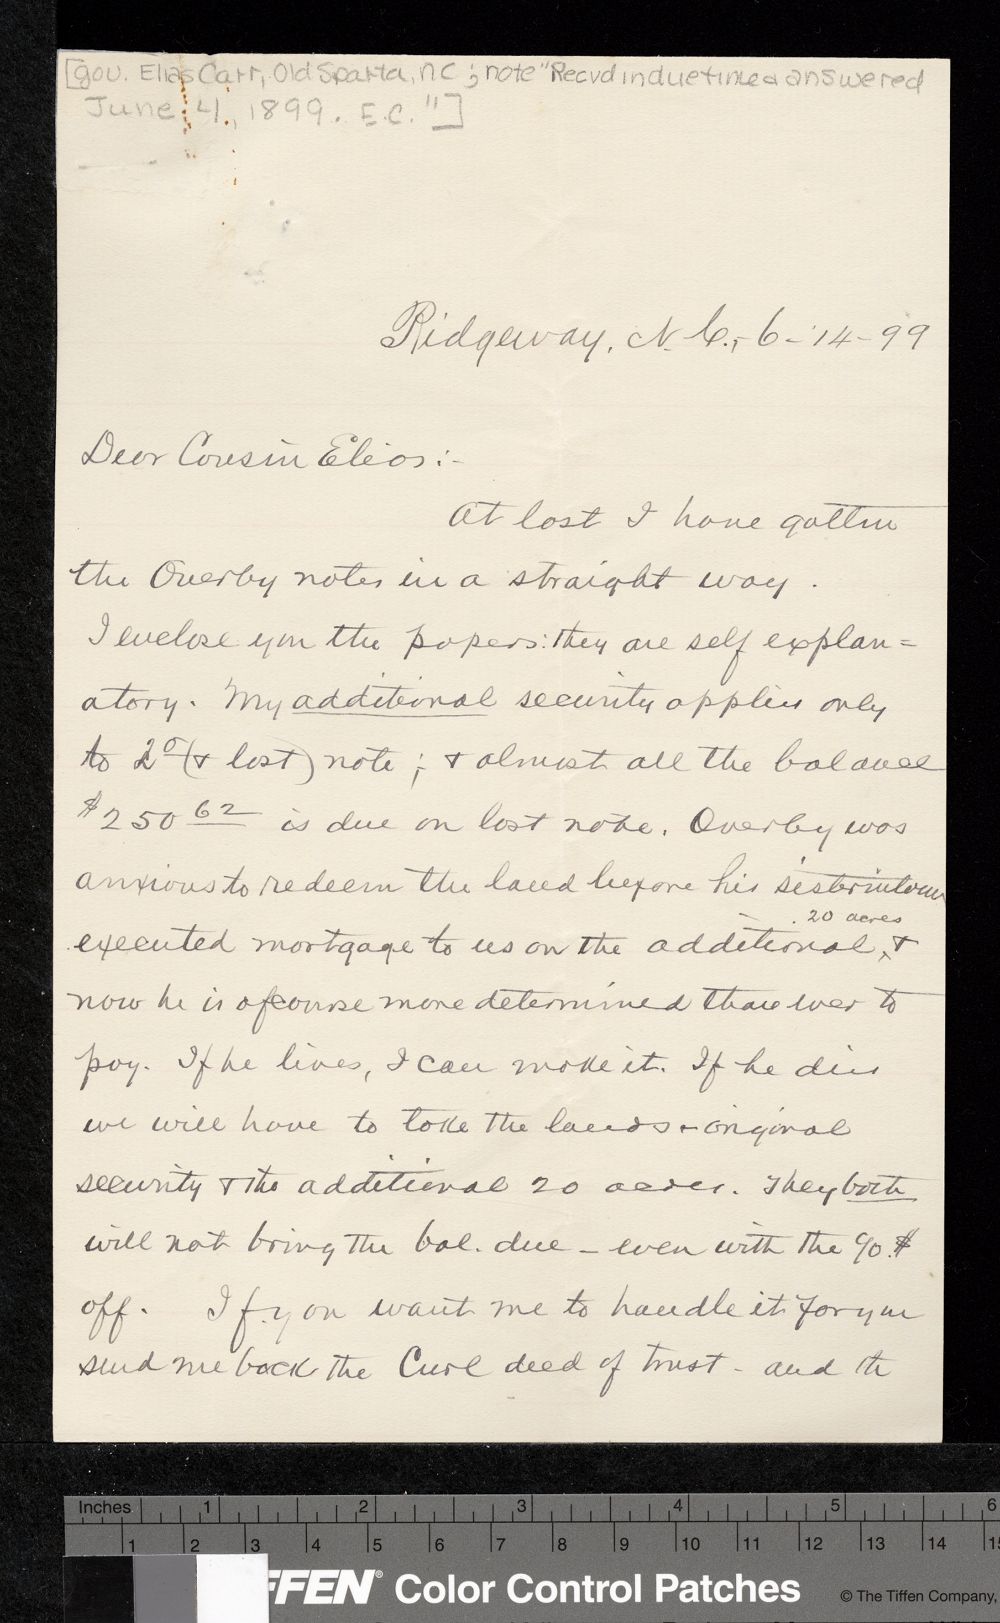 [Gov. Elias Carr, Old Sparta, NC; note "Recvd in due time & answered
June 4, 1899. E.C."]
Ridgeway, N. C., 6-14-99
Dear Cousin Elias:-
At last I have gotten
the Overby notes in a straight way.
I enclose you the papers: they are self explan=
atory. My additional security applies only
to 2d (& last) note; & almost all the balance
$250 62 is due on last note. Overby was
anxious to redeem the land before his sisterinlaw
20 acres
executed mortgage to us on the additional, &
now he is of course more determined than ever to
pay. If he lives, I can make it. If he dies
we will have to take the lands - original
security & the additional 20 acres. They both
will not bring the bal. due - even with the 90 $
off. If you want me to handle it for you
send me back the Curl deed of trust - and th
Inches 1 2 3 4 5 6
1 2 3 4 5 6 7 8 9 10 11 12 13 14 15
FFEN® Color Control Patches
© The Tiffen Company,